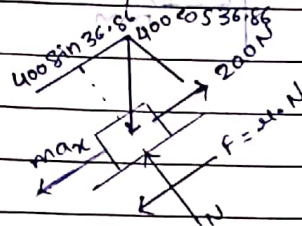 400 sin 36.86
400 cos 36.86
200 N
max
F = μ. N
N